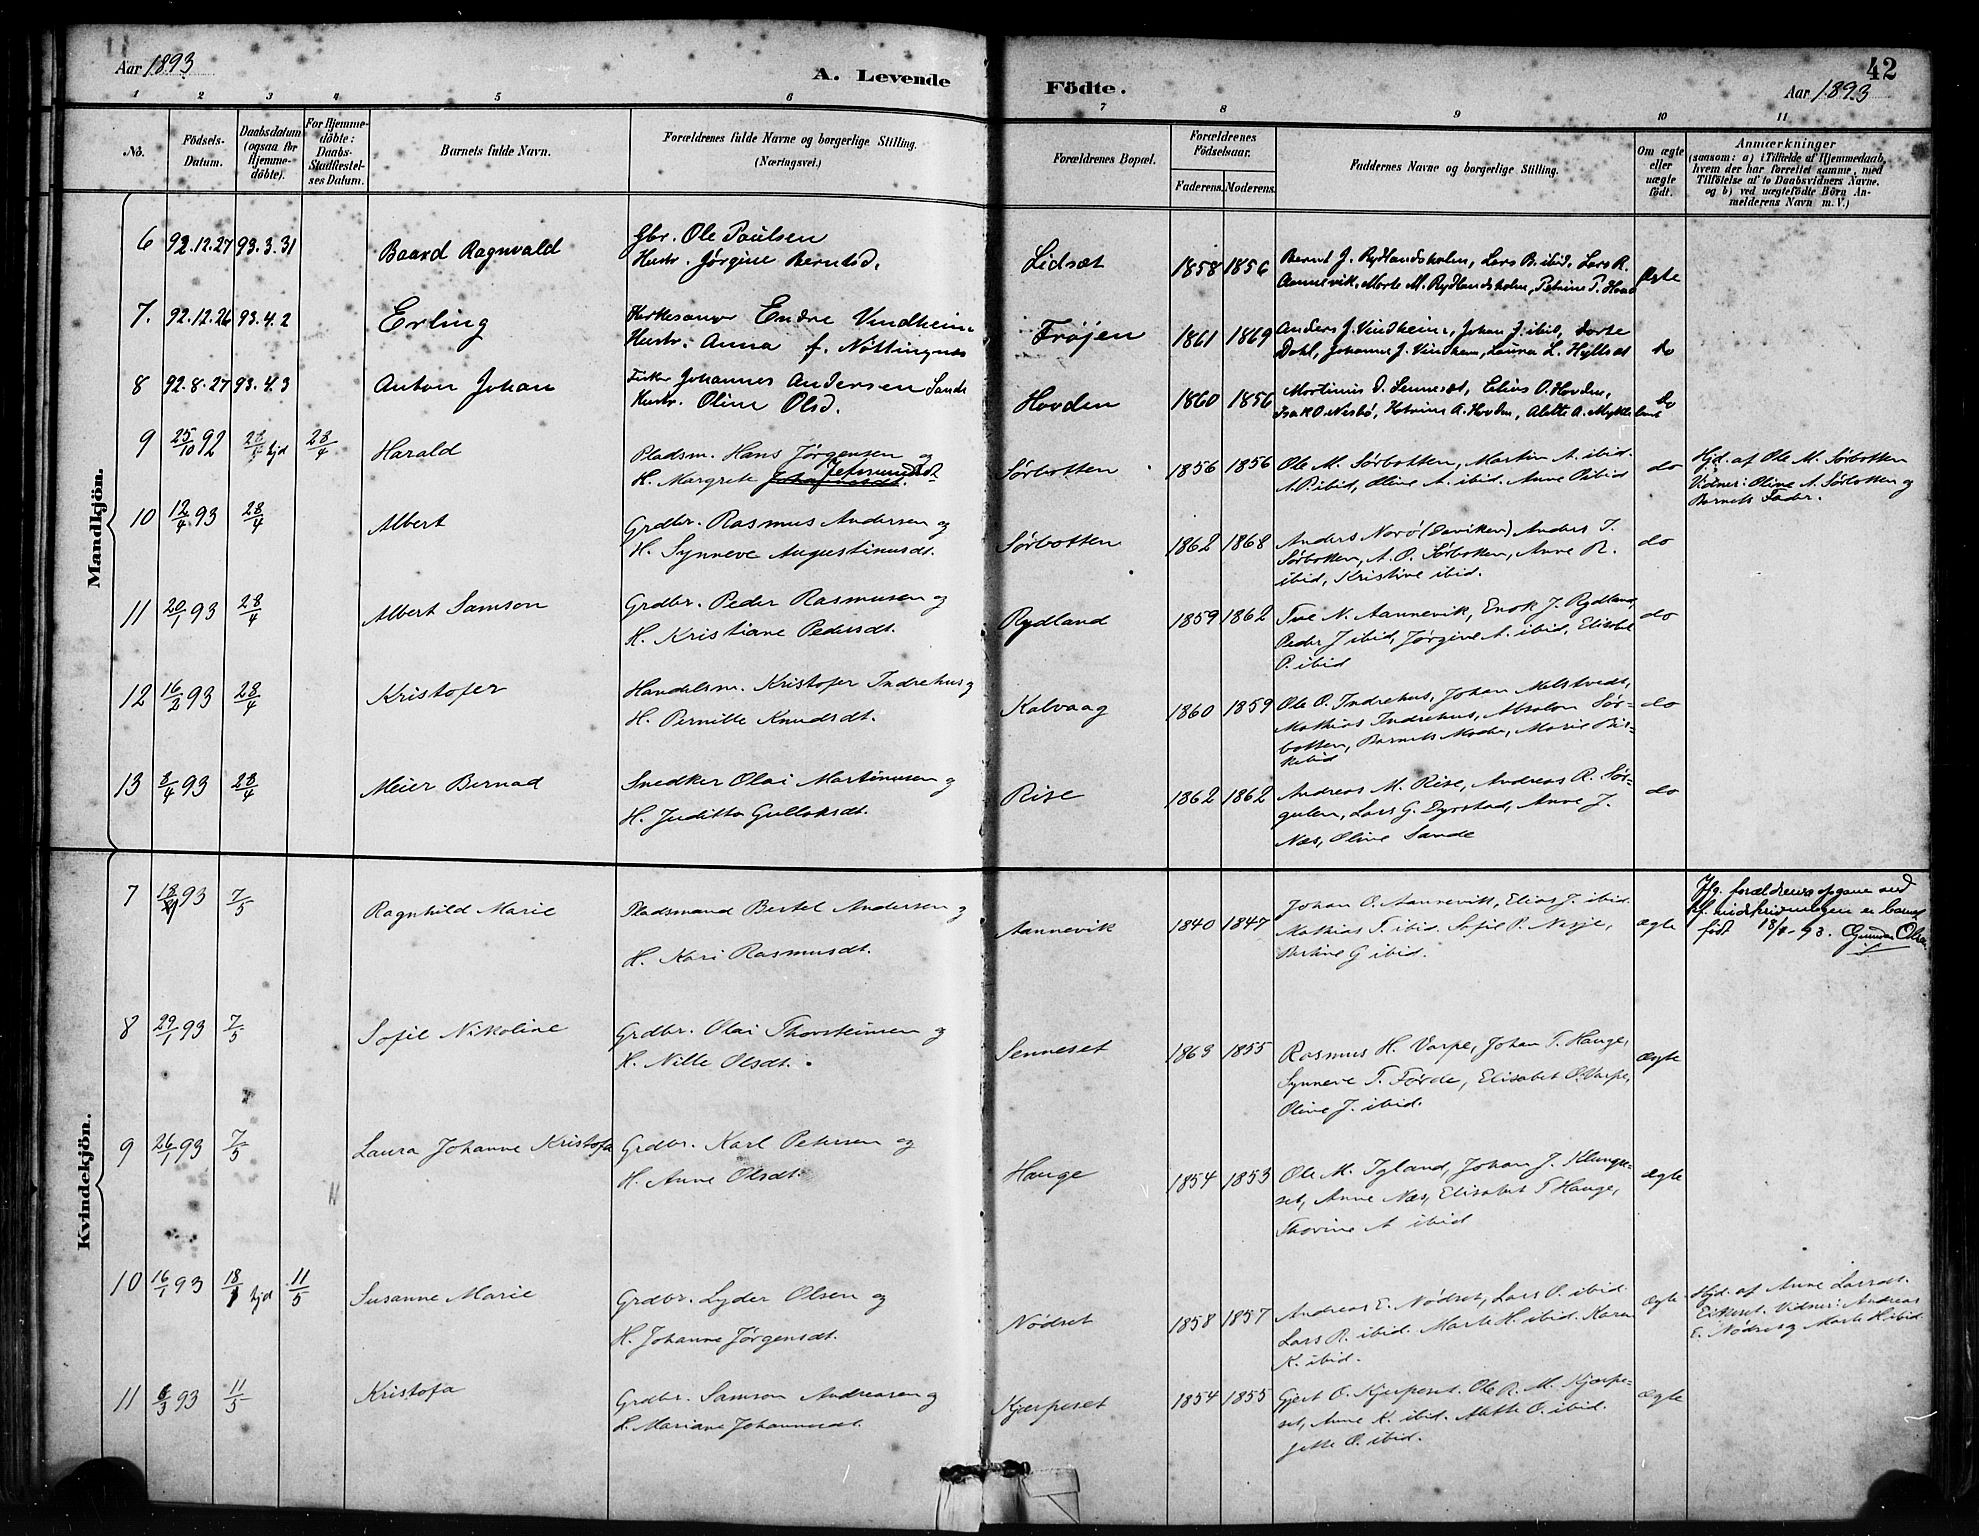 Aar 1893
A. Levende
Födte.
42
Aar 1893
1 2 3 4 5 6 7 8 9 10 11
No.
Födsels-
Datum.
Daabsdatum
(ogsaa for
Hjemme-
døbte).
For Hjemme-
döbte:
Daabs-
Stadfæstel-
ses Datum.
Barnets fulde Navn.
Forældrenes fulde Navne og borgerlige Stilling.
(Næringsvei.)
Forældrenes Bopæl.
Forældrenes
Födselsaar.
Faderens. Moderens.
Faddernes Navne og borgerlige Stilling.
Om ægte
eller
uægte
födt.
Anmærkninger
(saasom: a) i Tilfælde af Hjemmedaab,
hvem der har forrettet samme, med
Tilföielse af to Daabsvidners Navne,
og b) ved uægtefödte Börn An-
melderens Navn m. V.)
Mandkjön.
6 92.12.27 93.3.31 Baard Ragnvald
Gbr. Ole Paulsen
Hustr. Jørgine Berntsd.
Lidsæt 1858 1856
Bernt J. Rydlandsholm, Lars B. ibid, Lars R.
Aannevik, Marte M. Rydlandsholm, Petrine P.
Ægte
7. 92.12.26 93.4.2 Erling
Kirkesanger Endre Vindheim
Hustr. Anna f. Nøttingnes
Frøjen 1861 1869
Anders J. Vindheim, Johan J. ibid, Dorte
Dahl, Johanne J. Vindhem, Laura L. Hyllsæt
do
8 92.8.27 93.4.3 Anton Johan
Fisker Johannes Andersen Sande
Hustr. Oline Olsd.
Hovden 1860 1856
Mortinus D. Sennesæt, Elias O. Hovden,
Isak O. Nesbø, Katrine A. Hovden, Alette A. Myklebust
do
9 25/10 92 28/ hjd 28/4 Harald
Pladsm. Hans Jørgensen og
H. Margrete Jetmundsdt.
Sørbotten 1856 1856
Ole M. Sørbotten, Martin A. ibid.
A. P. ibid, Oline A. ibid. Anne O ibid
do
Hjd. af Ole M. Sørbotten
Vidner: Oline A. Sørbotten og
Barnets Fader.
10 12/4 93 28/4 Albert
Grdbr. Rasmus Andersen og
H. Synneve Augustinusdt.
Sørbotten 1862 1868
Anders Norø (Daviken) Anders T.
Sørbotten, A. O. Sørbotten, Anne R.
ibid, Kristine ibid.
do
11 20/1 93 28/4 Albert Samson
Grdbr. Peder Rasmusen og
H. Kristiane Pedersdt.
Rydland 1859 1862
Tue N. Aannevik, Enok J. Rydland,
Peder J ibid, Jørgine A. ibid, Elisabet
P. ibid
do
12 16/2 93 28/4 Kristofer
Handelsm. Kristofer Indrehus og
H. Pernille Knudsdt.
Kalvaag 1860 1859
Ole O. Indrehus, Johan Melstvedt,
Mathias Indrehus, Absalon Sør-
botten, Barnets Moder, Marie

do
13 8/4 93 28/4 Meier Bernad
Snedker Olai Martinusen og
H. Juditta Gullaksdt.
Rise 1862 1862
Andreas M. Rise, Andreas R. Sør-
gulen, Lars G. Dyrstad, Anne J.
Næs, Oline Sande
do
Kvindekjön.
7 18/ 93 7/5 Ragnhild Marie
Pladsmand Bertel Andersen og
H. Kari Rasmusdt.
Aannevik 1840 1847
Johan O. Aannevik, Elias J. ibid.
Mathias T. ibid. Sofie P. Nesje,
Bertine G ibid.
ægte
Iflg. forældrenes opgave ved
er barnet
født 18/ -93. Gunnar Olsen
8 29/1 93 7/5 Sofie Nikoline
Grdbr. Olai Thorsteinsen og
H. Nille Olsdt.
Senneset 1863 1855
Rasmus H. Varpe, Johan T. Hauge,
Synneve T. Førde, Elisabet O. Varpe,
Oline J. ibid.
ægte
9 26/1 93 7/5 Laura Johanne Kristofa
Grdbr. Karl Petersen og
H. Anne Olsdt.
Hauge 1854 1853
Ole M. Igland, Johan J. Klunge-
set, Anne Næs, Elisabet T Hauge,
Thorine A ibid
ægte
10 16/1 93 18/ hjd 11/5 Susanne Marie
Grdbr. Lyder Olsen og
H. Johanne Jørgensdt.
Nødset 1858 1857
Andreas E. Nødset, Lars O. ibid.
Lars R. ibid. Marte H. ibid. Karen
K. ibid.
ægte
Hjd. af Anne Larsdt.
Eikeset. Vidner: Andreas
E. Nødset og Marte H ibid.
11 6/3 93 11/5 Kristofa
Grdbr. Samson Andreasen og
H. Mariane Johannesdt.
Kjærpeset 1854 1855
Gjert O. Kjærpeset. Ole R. M. Kjærpe-
set, Anne K. ibid. Alette O. ibid.
Jette O. ibid.
ægte